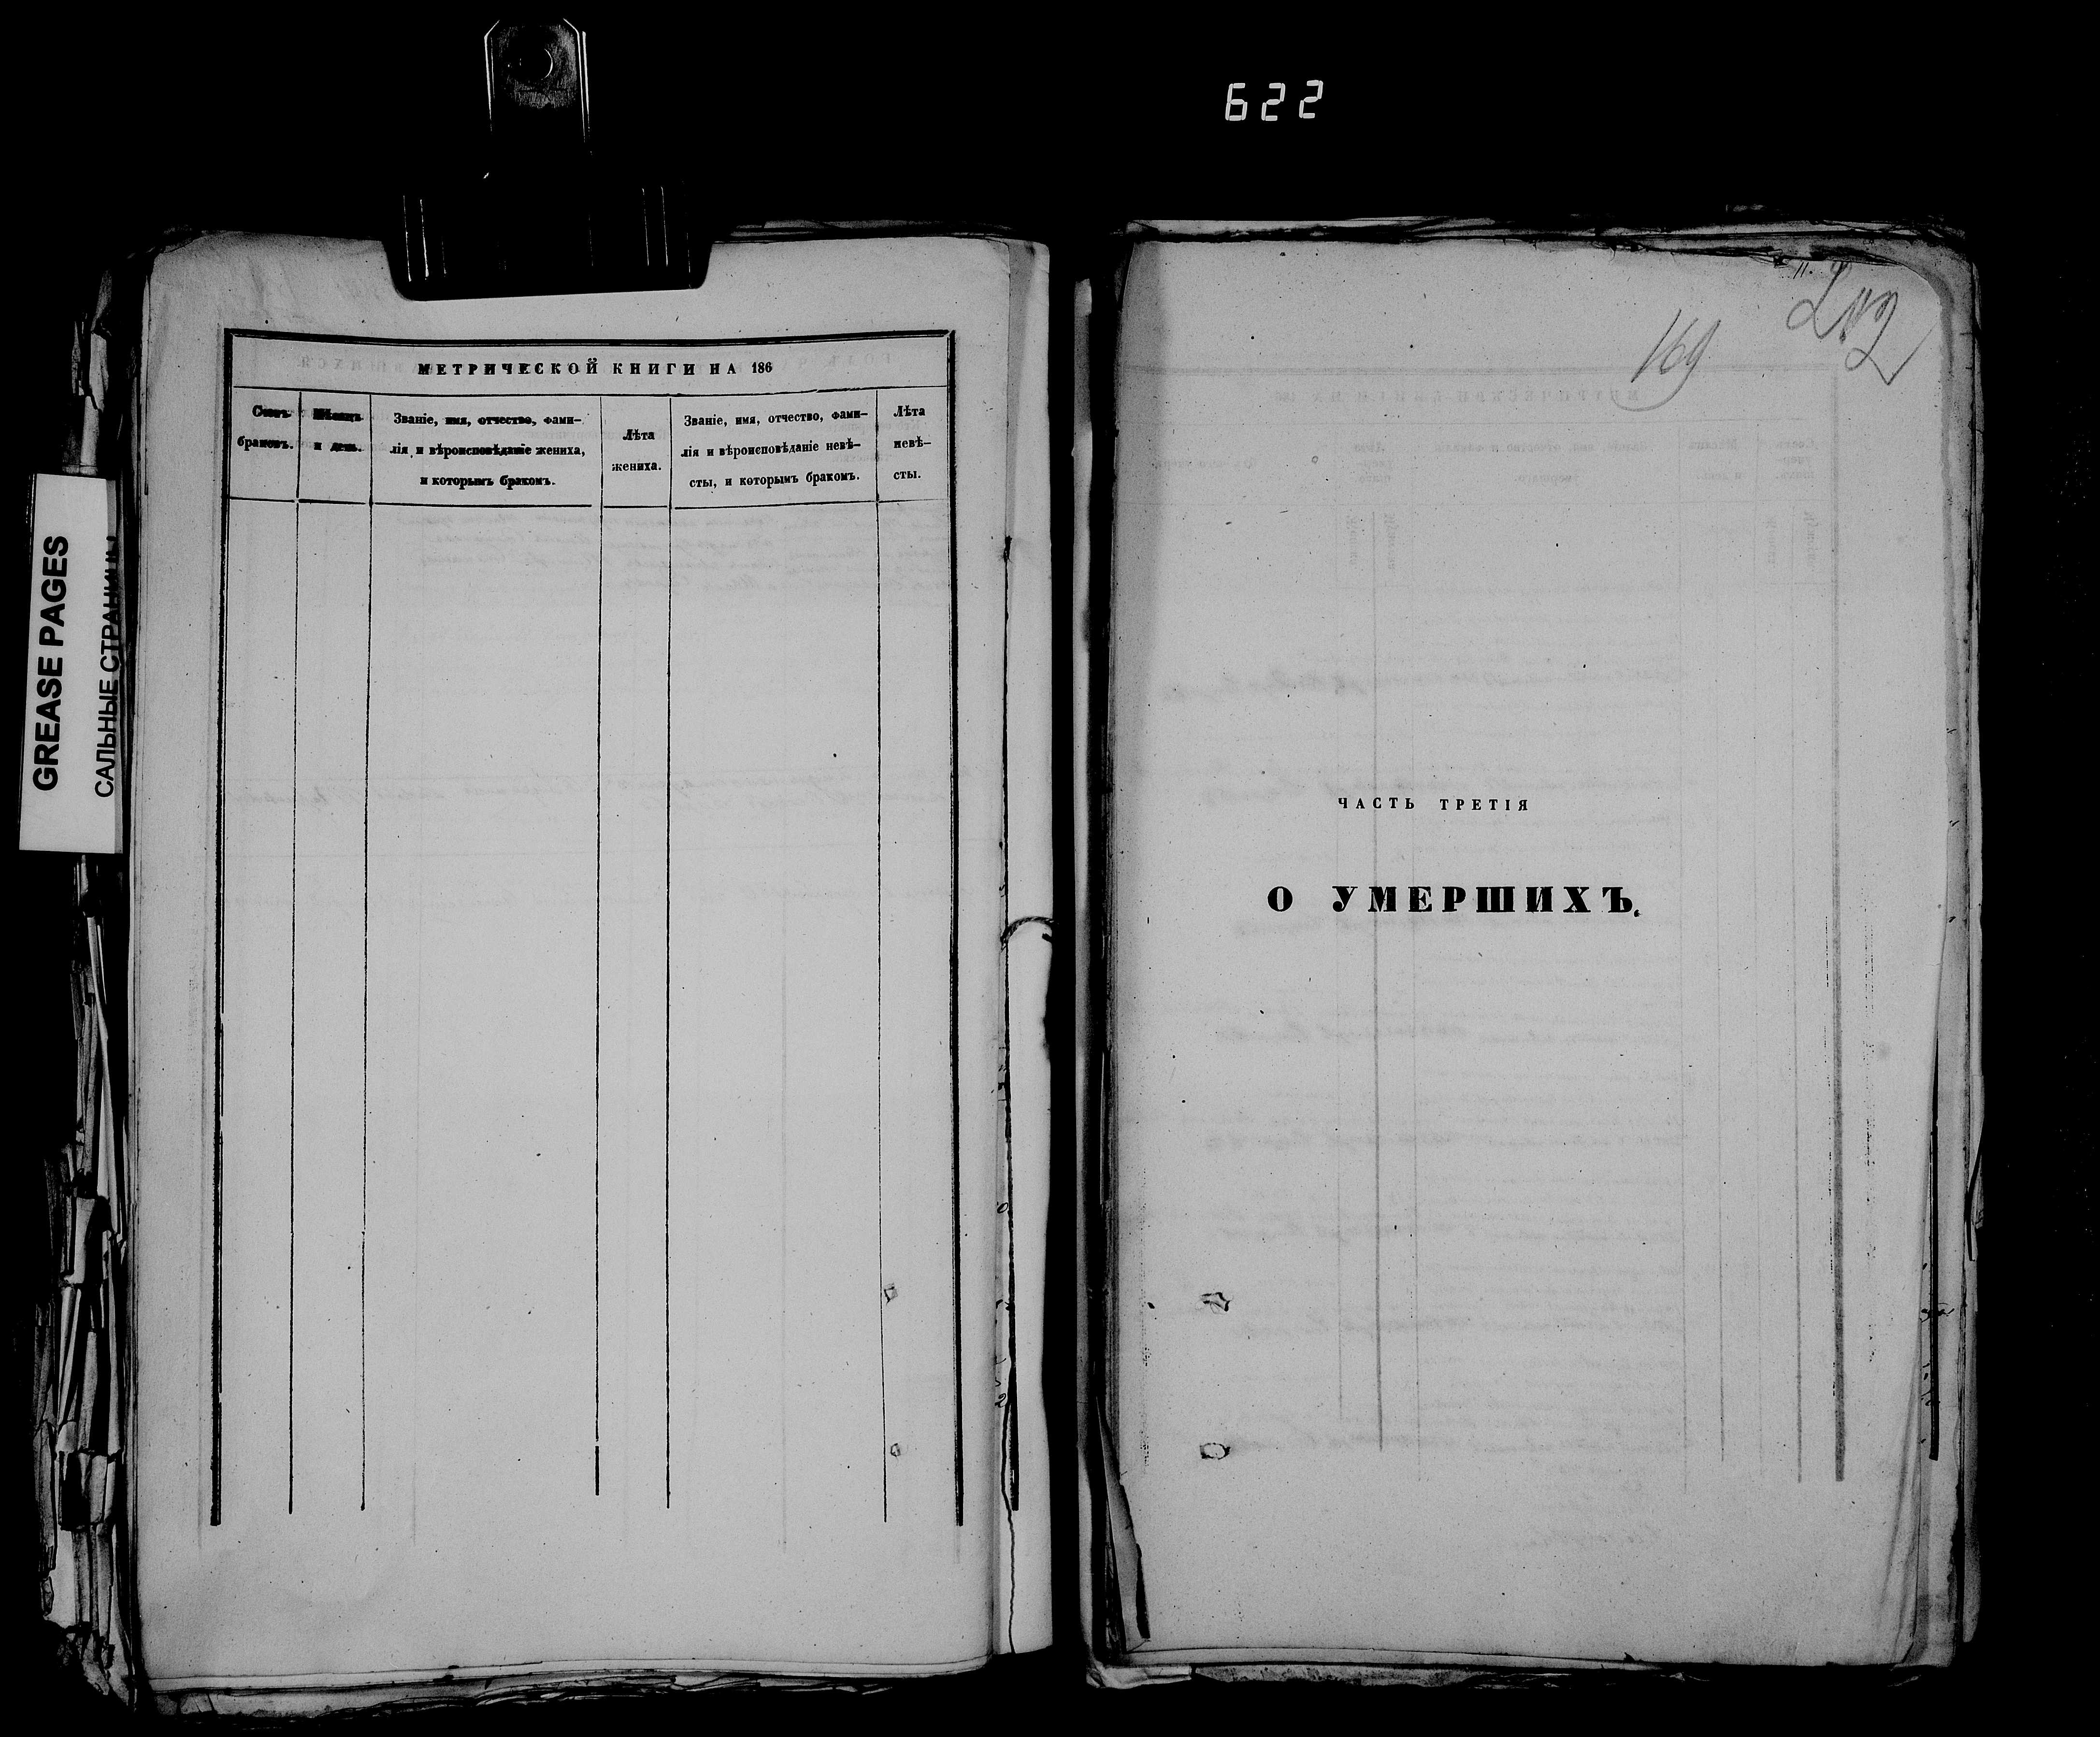 622
GREASE PAGES
САЛЬНЫЕ СТРАНИЦЫ
МЕТРИЧЕСКОЙ КНИГИ НА 186
Счетъ
браковъ.
Мѣсяцъ
и день.
Званіе, имя, отчество, фами-
лія и вѣроисповѣданіе жениха,
и которымъ бракомъ.
Лѣта
жениха.
Званіе, имя, отчество, фами-
лія и вѣроисповѣданіе невѣ-
сты, и которымъ бракомъ.
Лѣта
невѣ-
сты.
169
ЧАСТЬ ТРЕТІЯ
О УМЕРШИХЪ.